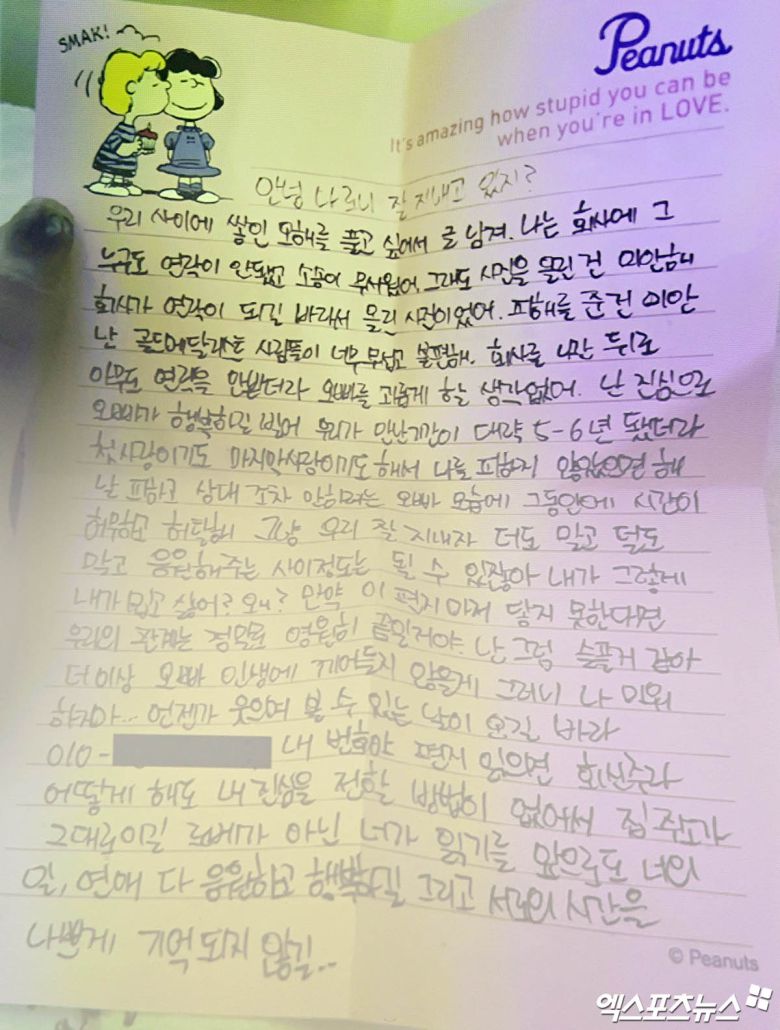 SMAK!
Peanuts
It's amazing how stupid you can be
when you're in LOVE.
안녕 나르니 잘 지내고 있지?
우리 사이에 쌓인 오해를 풀고 싶어서 글 남겨. 나는 회사에 그
누구도 연락이 안됐고 소송이 무서웠어. 그래도 사진을 올린 건 미안해
회사가 연락이 되길 바라서 올린 사진이었어. 피해를 준건 미안
난 골드메달리스트 사람들이 너무 무섭고 불편해. 회사를 나간 뒤로
아무도 연락을 안받더라 오빠를 괴롭게 하는 생각없어. 난 진심으로
오빠가 행복하길 빌어 우리가 만난기간이 대략 5-6년 됐더라
첫사랑이기도 마지막사랑이기도 해서 나를 피하지 않았으면 해
날 피하고 상대 조차 안하려는 오빠 모습에 그동안에 시간이
허무하고 허탈해 그냥 우리 잘 지내자 더도 말고 덜도
말고 응원해주는 사이정도는 될 수 있잖아 내가 그렇게
내가 밉고 싫어? 왜? 만약 이 편지마저 닿지 못한다면
우리의 관계는 정말로 영원히 끝일거야 난 그럼 슬플거 같아
더 이상 오빠 인생에 끼어들지 않을게 그러니 나 미워
하지마.. 언젠가 웃으며 볼 수 있는 날이 오길 바라
010- 내 번호야 편지 읽으면 회신주라
어떻게 해도 내 진심을 전할 방법이 없어서 집 주소가
그대로이길 로베가 아닌 너가 읽기를 앞으로도 너의
일, 연애 다 응원하고 행복하길 그리고 서로의 시간을
나쁘게 기억되지 않길..
© Peanuts
엑스포츠뉴스